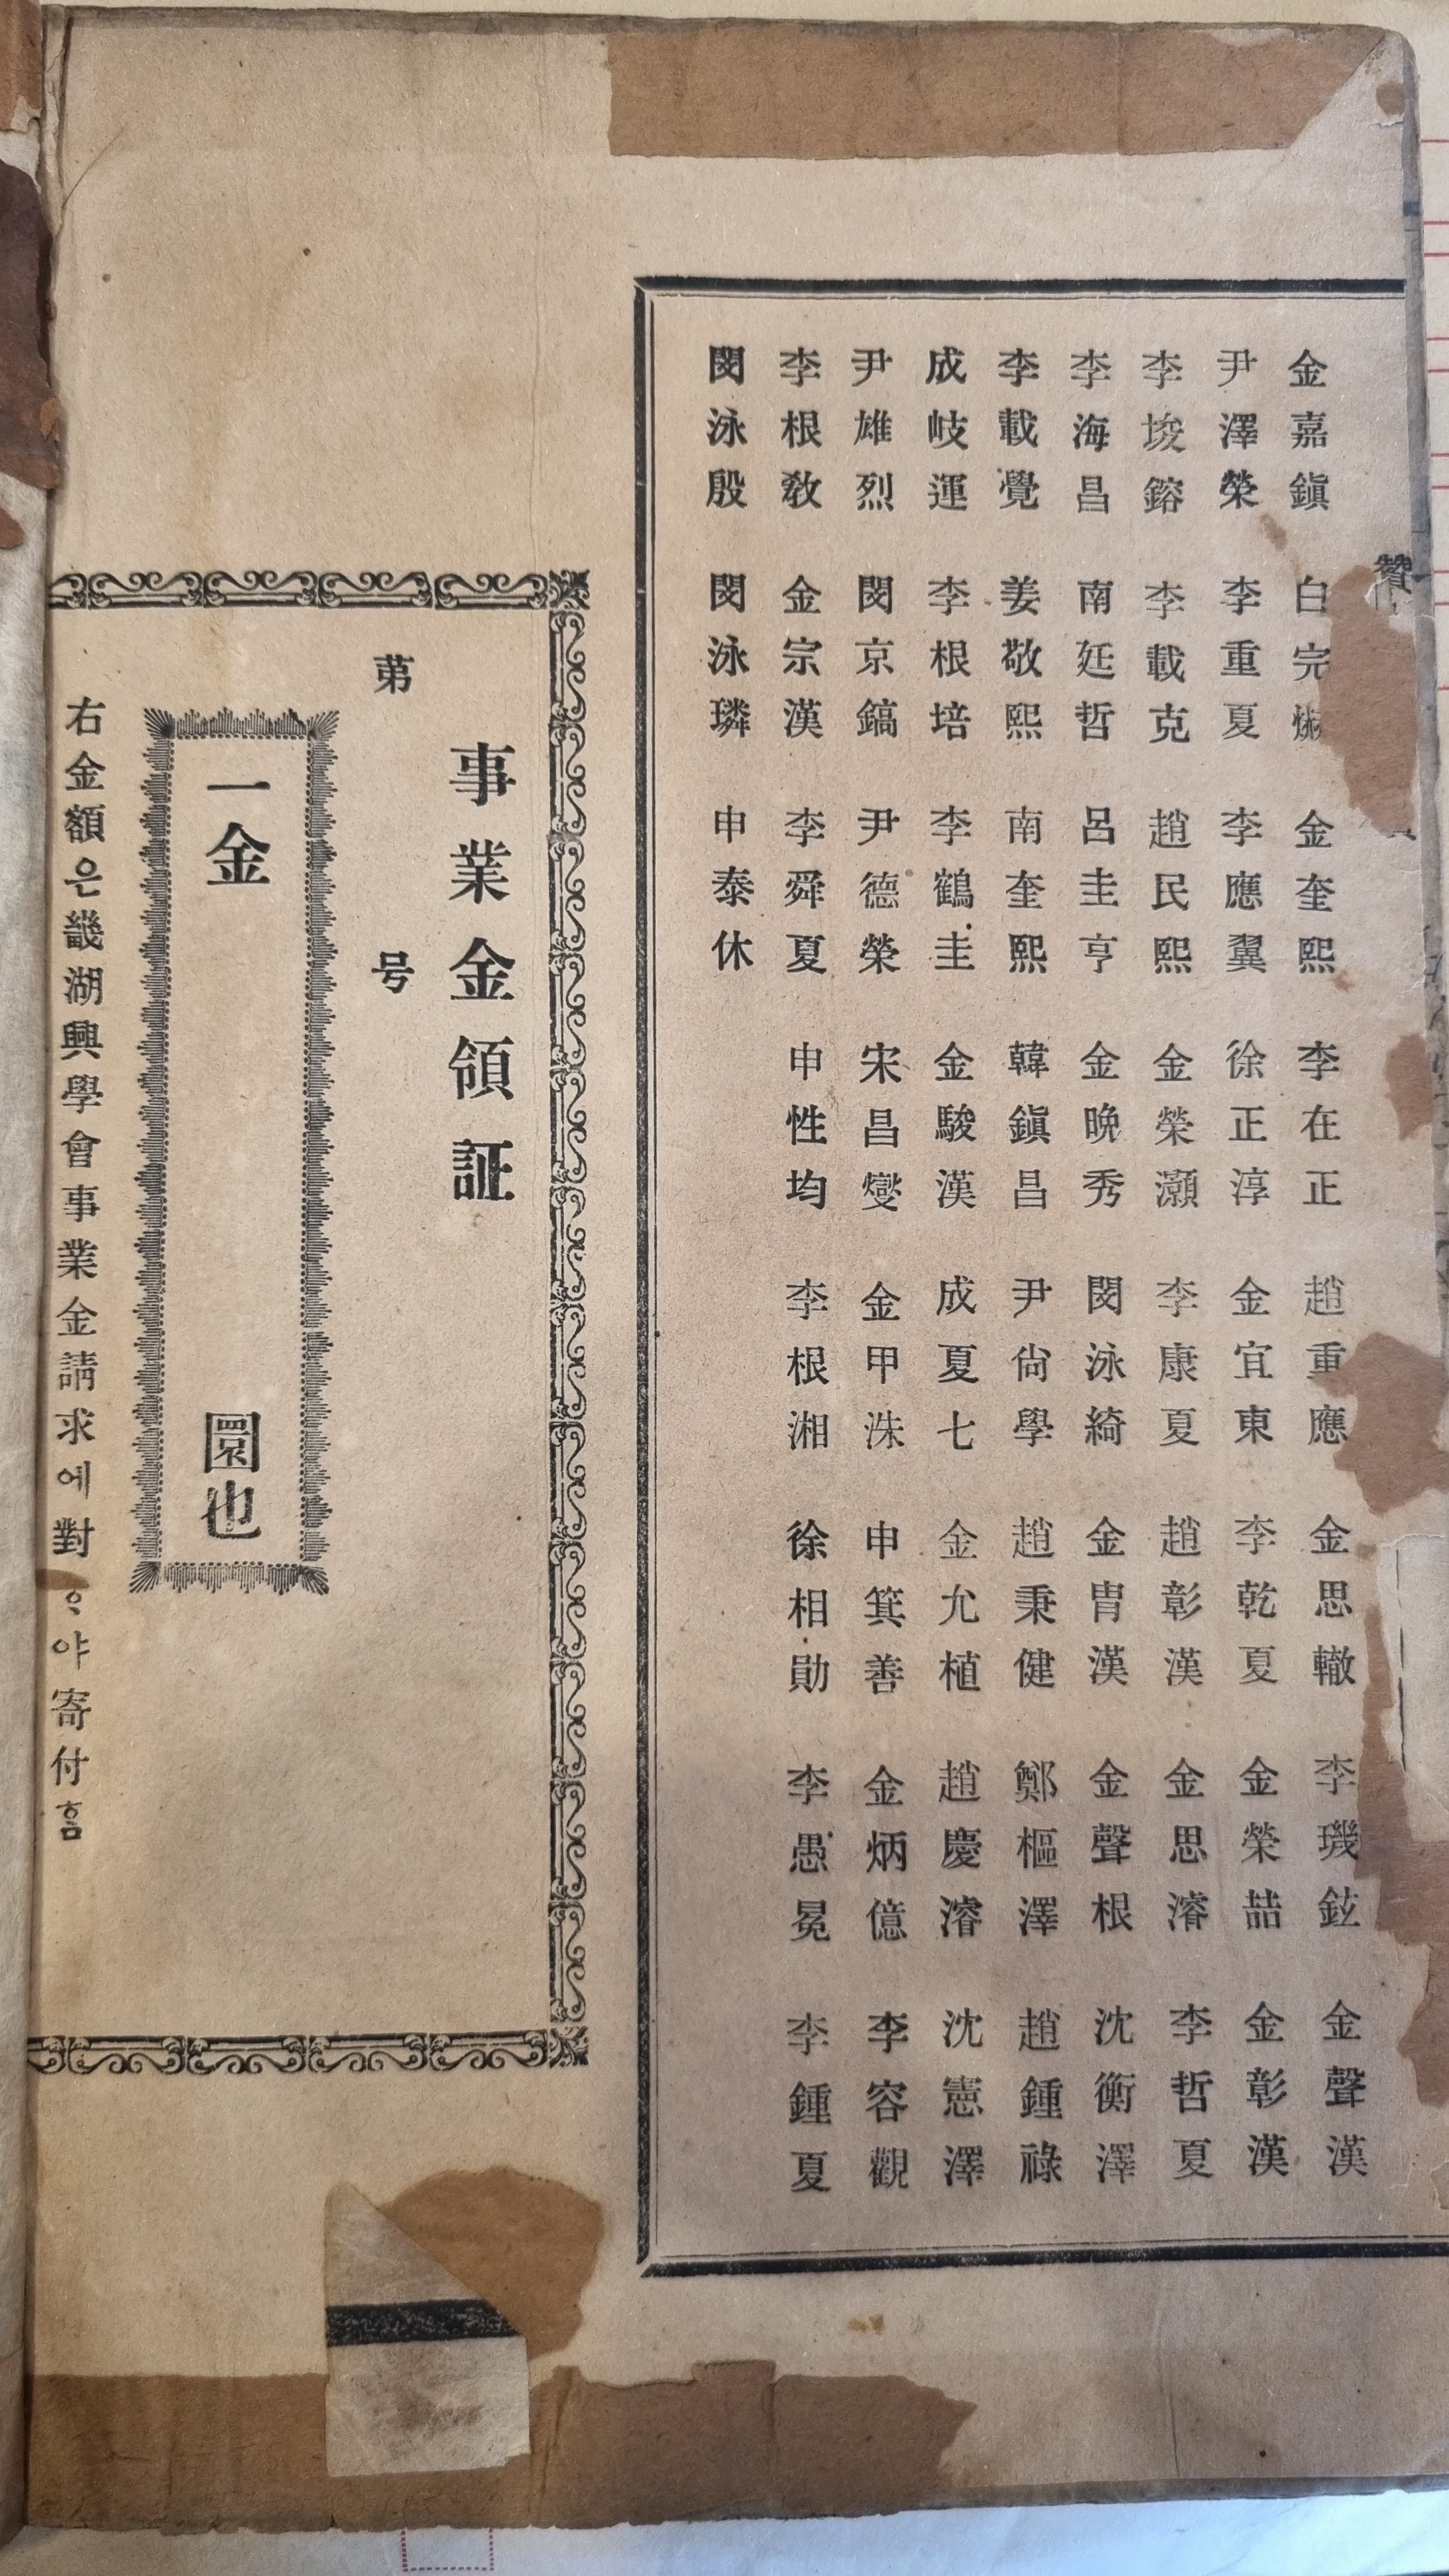 贊
金嘉鎭 白完 金奎熙 李在正 趙重應 金思轍 李璣鉉 金聲漢
尹澤榮 李重夏 李應翼 徐正淳 金宜東 李乾夏 金榮喆 金彰漢
李埈鎔 李載克 趙民熙 金榮灝 李康夏 趙彰漢 金思濬 李哲夏
李海昌 南廷哲 呂圭亨 金晩秀 閔泳綺 金胄漢 金聲根 沈衡澤
李載覺 姜敬熙 南奎熙 韓鎭昌 尹尙學 趙秉健 鄭樞澤 趙鍾祿
成岐運 李根培 李鶴圭 金駿漢 成夏七 金允植 趙慶濬 沈憲澤
尹雄烈 閔京鎬 尹德榮 宋昌燮 金甲洙 申箕善 金炳億 李容觀
李根敎 金宗漢 李舜夏 申性均 李根湘 徐相勛 李愚冕 李鍾夏
閔泳殷 閔泳璘 申泰休
事業金領証
苐 号
一金 圜也
右金額은畿湖興學會事業金請求에對ᄒᆞ야寄付흠